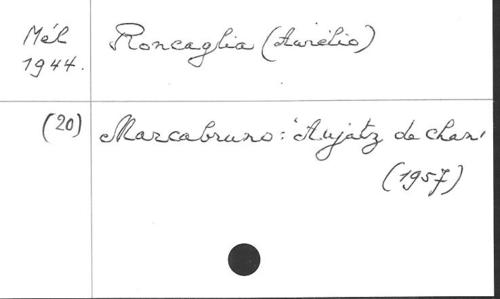 Mél
1944.
Roncaglia (Aurélio)
(20)
Marcabruno: "Aujatz de chan"
(1957)